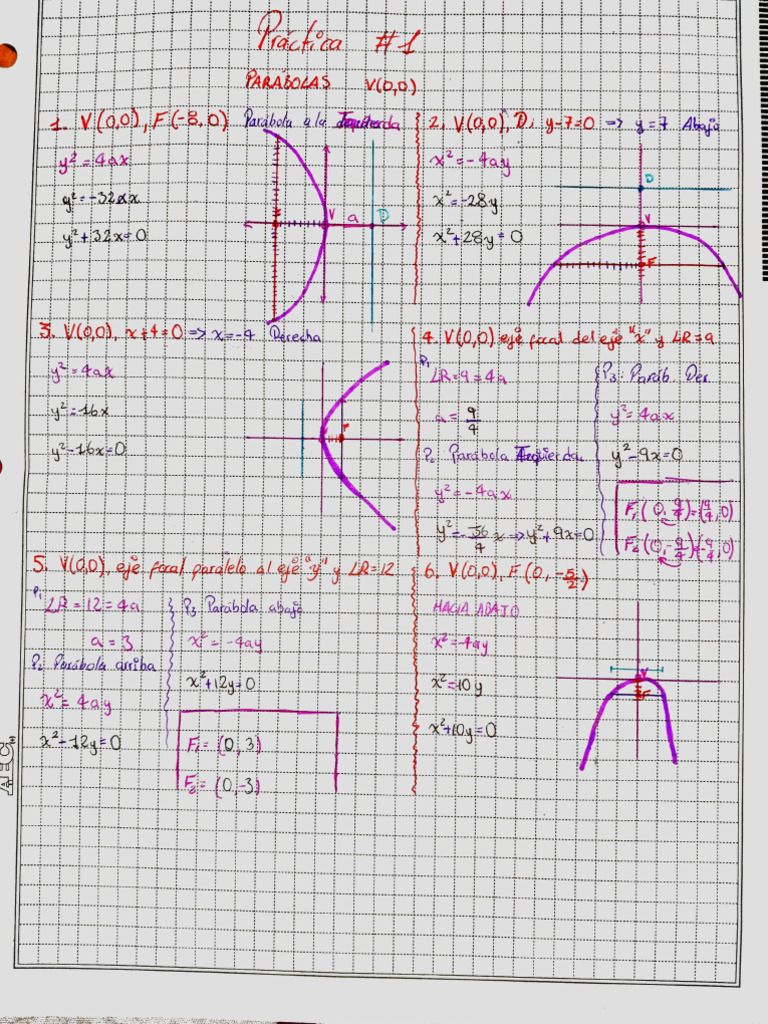 Práctica #1
PARÁBOLAS V(0,0)
1. V(0,0), F(-8,0) Parábola a la Izquierda
y² = 4ax
y² = -32x
y² + 32x = 0
V a D
2. V(0,0), D: y-7=0 => y = 7 Abajo
x² = -4ay
x² = -28y
x² + 28y = 0
D
V
F
3. V(0,0), x+4=0 => x=-4 Derecha
y² = 4ax
y² = 16x
y² - 16x = 0
F
4. V(0,0) eje focal del eje "x" y LR=9
P1
LR = 9 = 4a
a = 9/4
P2 Parábola Izquierda
y² = -4ax
y² = -36/4 x => y² + 9x = 0
P3: Paráb. Der.
y² = 4ax
y² - 9x = 0
F1(0, 9/4) = (9/4, 0)
F2(0, -9/4) = (-9/4, 0)
5. V(0,0), eje focal paralelo al eje "y" y LR=12
P1
LR = 12 = 4a
a = 3
P2 Parábola arriba
x² = 4ay
x² - 12y = 0
P3 Parábola abajo
x² = -4ay
x² + 12y = 0
F1 = (0, 3)
F2 = (0, -3)
6. V(0,0), F(0, -5/2)
HACIA ABAJO
x² = -4ay
x² = 10y
x² + 10y = 0
V
F